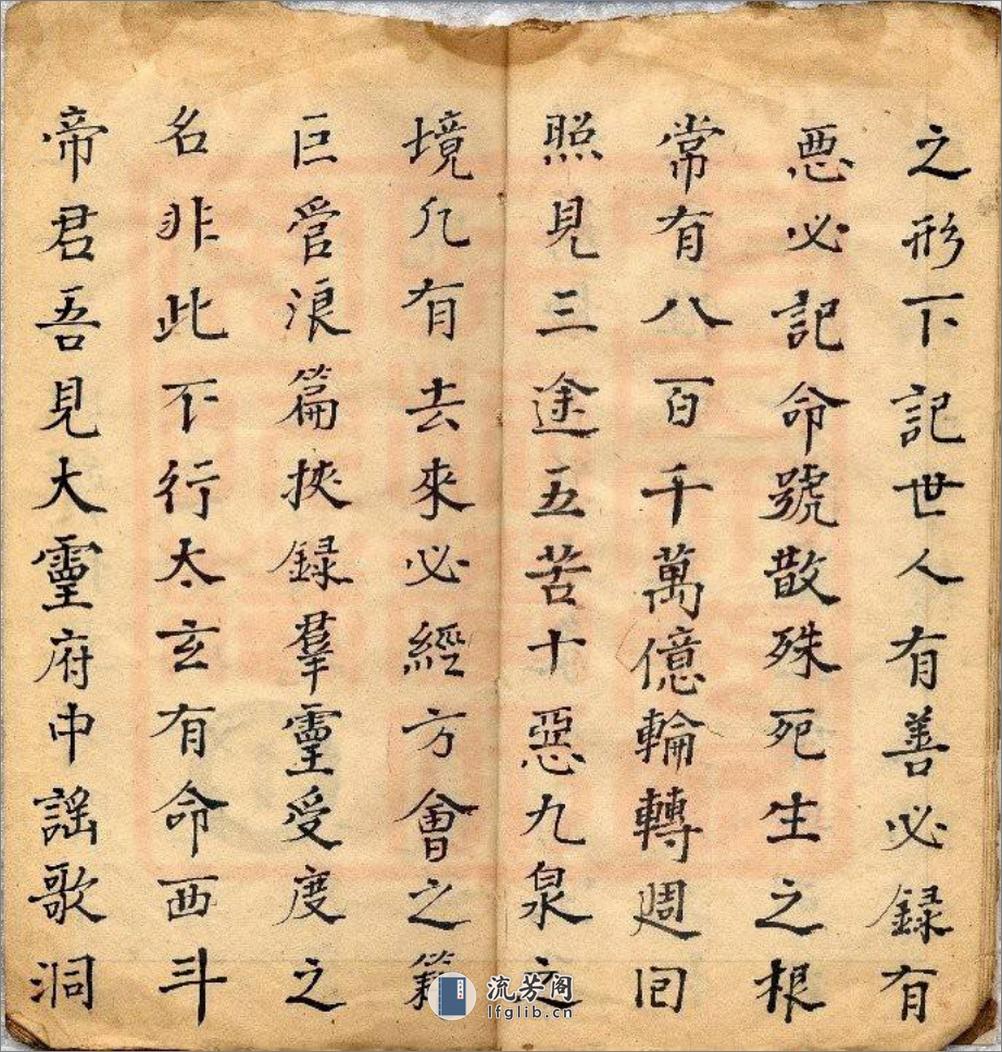 之形下記世人有善必録有
悪必記命號散殊死生之根
常有八百千萬億輪轉週回
照見三途五苦十惡九泉之
境凡有去來必經方會之籍
巨管浪篇挾録羣靈受度之
名非此不行太玄有命西斗
帝君吾見大靈府中謡歌洞
流芳阁
lfglib.cn